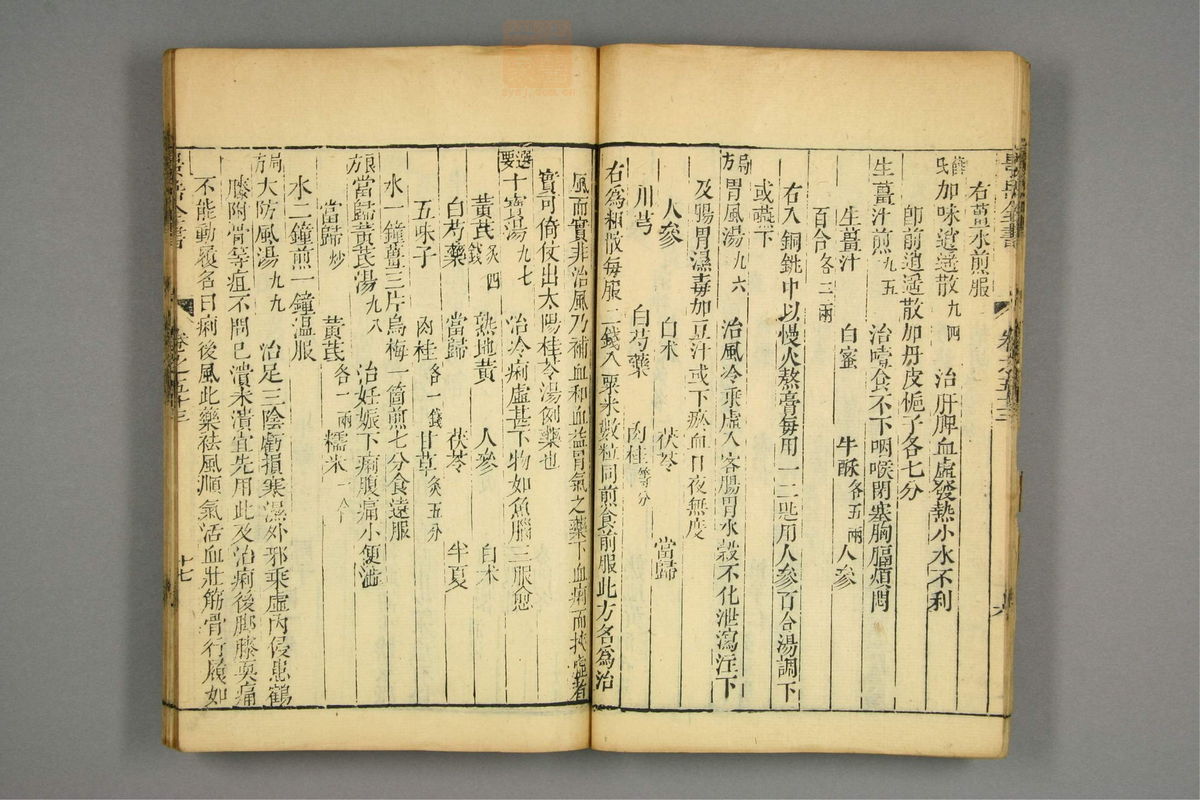 右薑水煎服
薛氏加味逍遙散九四　治肝脾血虛發熱小水不利
卽前逍遙散加丹皮梔子各七分
生薑汁煎九五　治噎食不下咽喉閉塞胸膈煩悶
生薑汁　白蜜　牛酥各五兩　人參
百合各二兩
右入銅銚中以慢火熬膏每用一二匙用人參百合湯調下
或嚥下
局方胃風湯九六　治風冷乘虛入客腸胃水穀不化泄瀉注下
及腸胃濕毒如豆汁或下瘀血日夜無度
人參　白朮　茯苓　當歸
川芎　白芍藥　肉桂等分
右爲粗散每服二錢入粟米數粒同煎食前服此方名爲治
風而實非治風乃補血和血益胃氣之藥下血痢而挾虛者
實可倚仗出太陽桂苓湯例藥也
選要十寶湯九七　治冷痢虛甚下物如魚腦三服愈
黃芪炙四錢　熟地黃　人參　白朮
白芍藥　當歸　茯苓　半夏
五味子　肉桂各一錢　甘草炙五分
水一鐘薑三片烏梅一箇煎七分食遠服
良方當歸黃芪湯九八　治妊娠下痢腹痛小便澁
當歸炒　黃芪各一兩　糯米一合
水二鐘煎一鐘温服
局方大防風湯九九　治足三陰虧損寒濕外邪乘虛內侵患鶴
膝附骨等疽不問已潰未潰宜先用此及治痢後脚膝耎痛
不能動履名曰痢後風此藥祛風順氣活血壯筋骨行履如
卷之五十三
十七